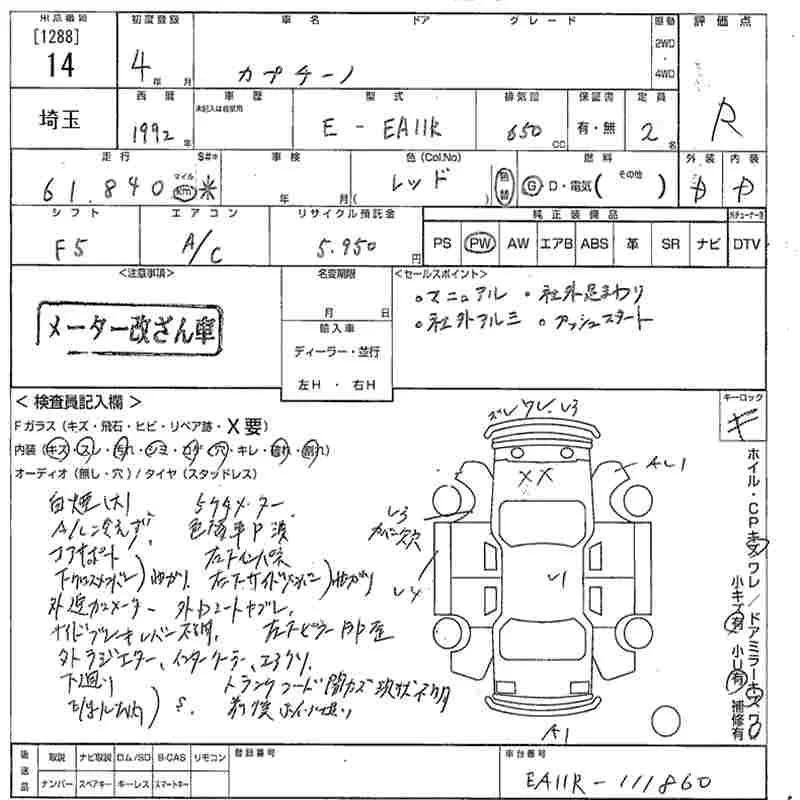 出品番号 初度登録 車名 ドア グレード 駆動 評価点
[1288] 2WD
14 4年 月 カプチーノ ・ R
4WD
西暦 車歴 型式 排気量 保証書 定員
埼玉 1992年 未記入は自家用 E-EA11R 650cc 有・無 2名
走行 S#* 車検 色(Col.No) 燃料 外装 内装
61,840 マイル km * 年 月 レッド ( ) 色替 G・D・電気( その他 ) D D
シフト エアコン リサイクル預託金 純正装備品
F5 A/C 5,950円 PS PW AW エアB ABS 革 SR ナビ DTV
<注意事項> 名変期限 <セールスポイント>
メーター改ざん車 月 日 ○マニュアル ○社外足まわり
輸入車 ○社外アルミ ○プッシュスタート
ディーラー・並行
左H ・ 右H
<検査員記入欄> キーロック
Fガラス(キズ・飛石・ヒビ・リペア跡・X要) キ
内装(キズ・スレ・汚れ・シミ・コゲ・穴・キレ・破れ・割れ)
オーディオ(無し・穴)/タイヤ(スタッドレス)
ズレ ワレ.レ3
AL1
XX
白煙(大) 5ケタメーター
レ3
A/C冷えず 色替車
コアサポート 左Fインパネ
カバー欠
下クロスメンバー)曲がり 左Fサイドメンバー)曲がり
レ4
レ1
外追加メーター
サイドブレーキレバー不良 左Fピラー
外ラジエター、インタークーラー、エアクリ.
下廻り トランクフード開かず 現状不明
) S. 前後ホイール違い
A1
ホイル・CPキズ ワレ/ドアミラーキズ ワレ
小キズ有 小U有 補修有
後送品 取説 ナビ取説 ロム/SD B-CAS リモコン 登録番号 車台番号
ナンバー スペアキー キーレス スマートキー EA11R-111860